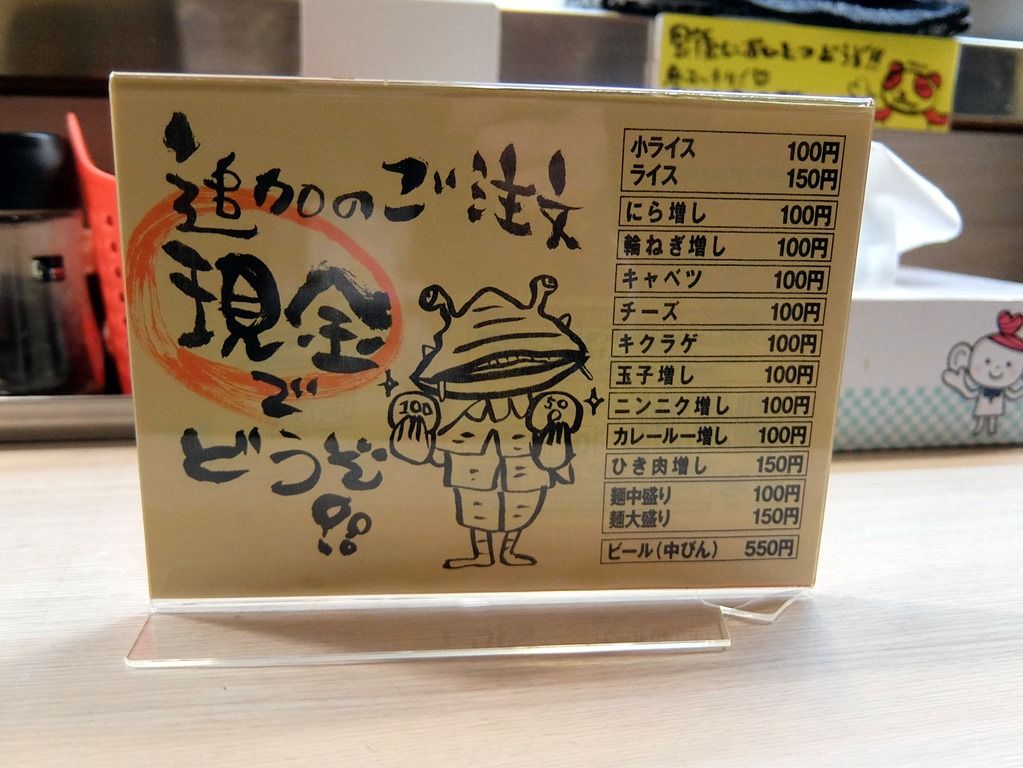 追加のご注文
現金
で
どうぞ!!
100
50
小ライス 100円
ライス 150円
にら増し 100円
輪ねぎ増し 100円
キャベツ 100円
チーズ 100円
キクラゲ 100円
玉子増し 100円
ニンニク増し 100円
カレールー増し 100円
ひき肉増し 150円
麺中盛り 100円
麺大盛り 150円
ビール(中びん) 550円